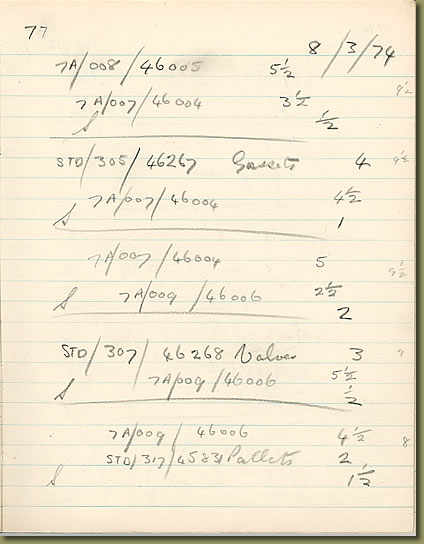 77
8/3/74
7A/008/46005 5½
7A/007/46004 3½ 9½
S ½
STD/305/46267 Gussets 4 9½
7A/007/46004 4½
S 1
7A/007/46004 5
S 7A/009/46006 2½ 9½
2
STD/307/46268 Valves 3 9
7A/009/46006 5½
S ½
7A/009/46006 4½ 8
STD/317/45831 Pallets 2
S 1½